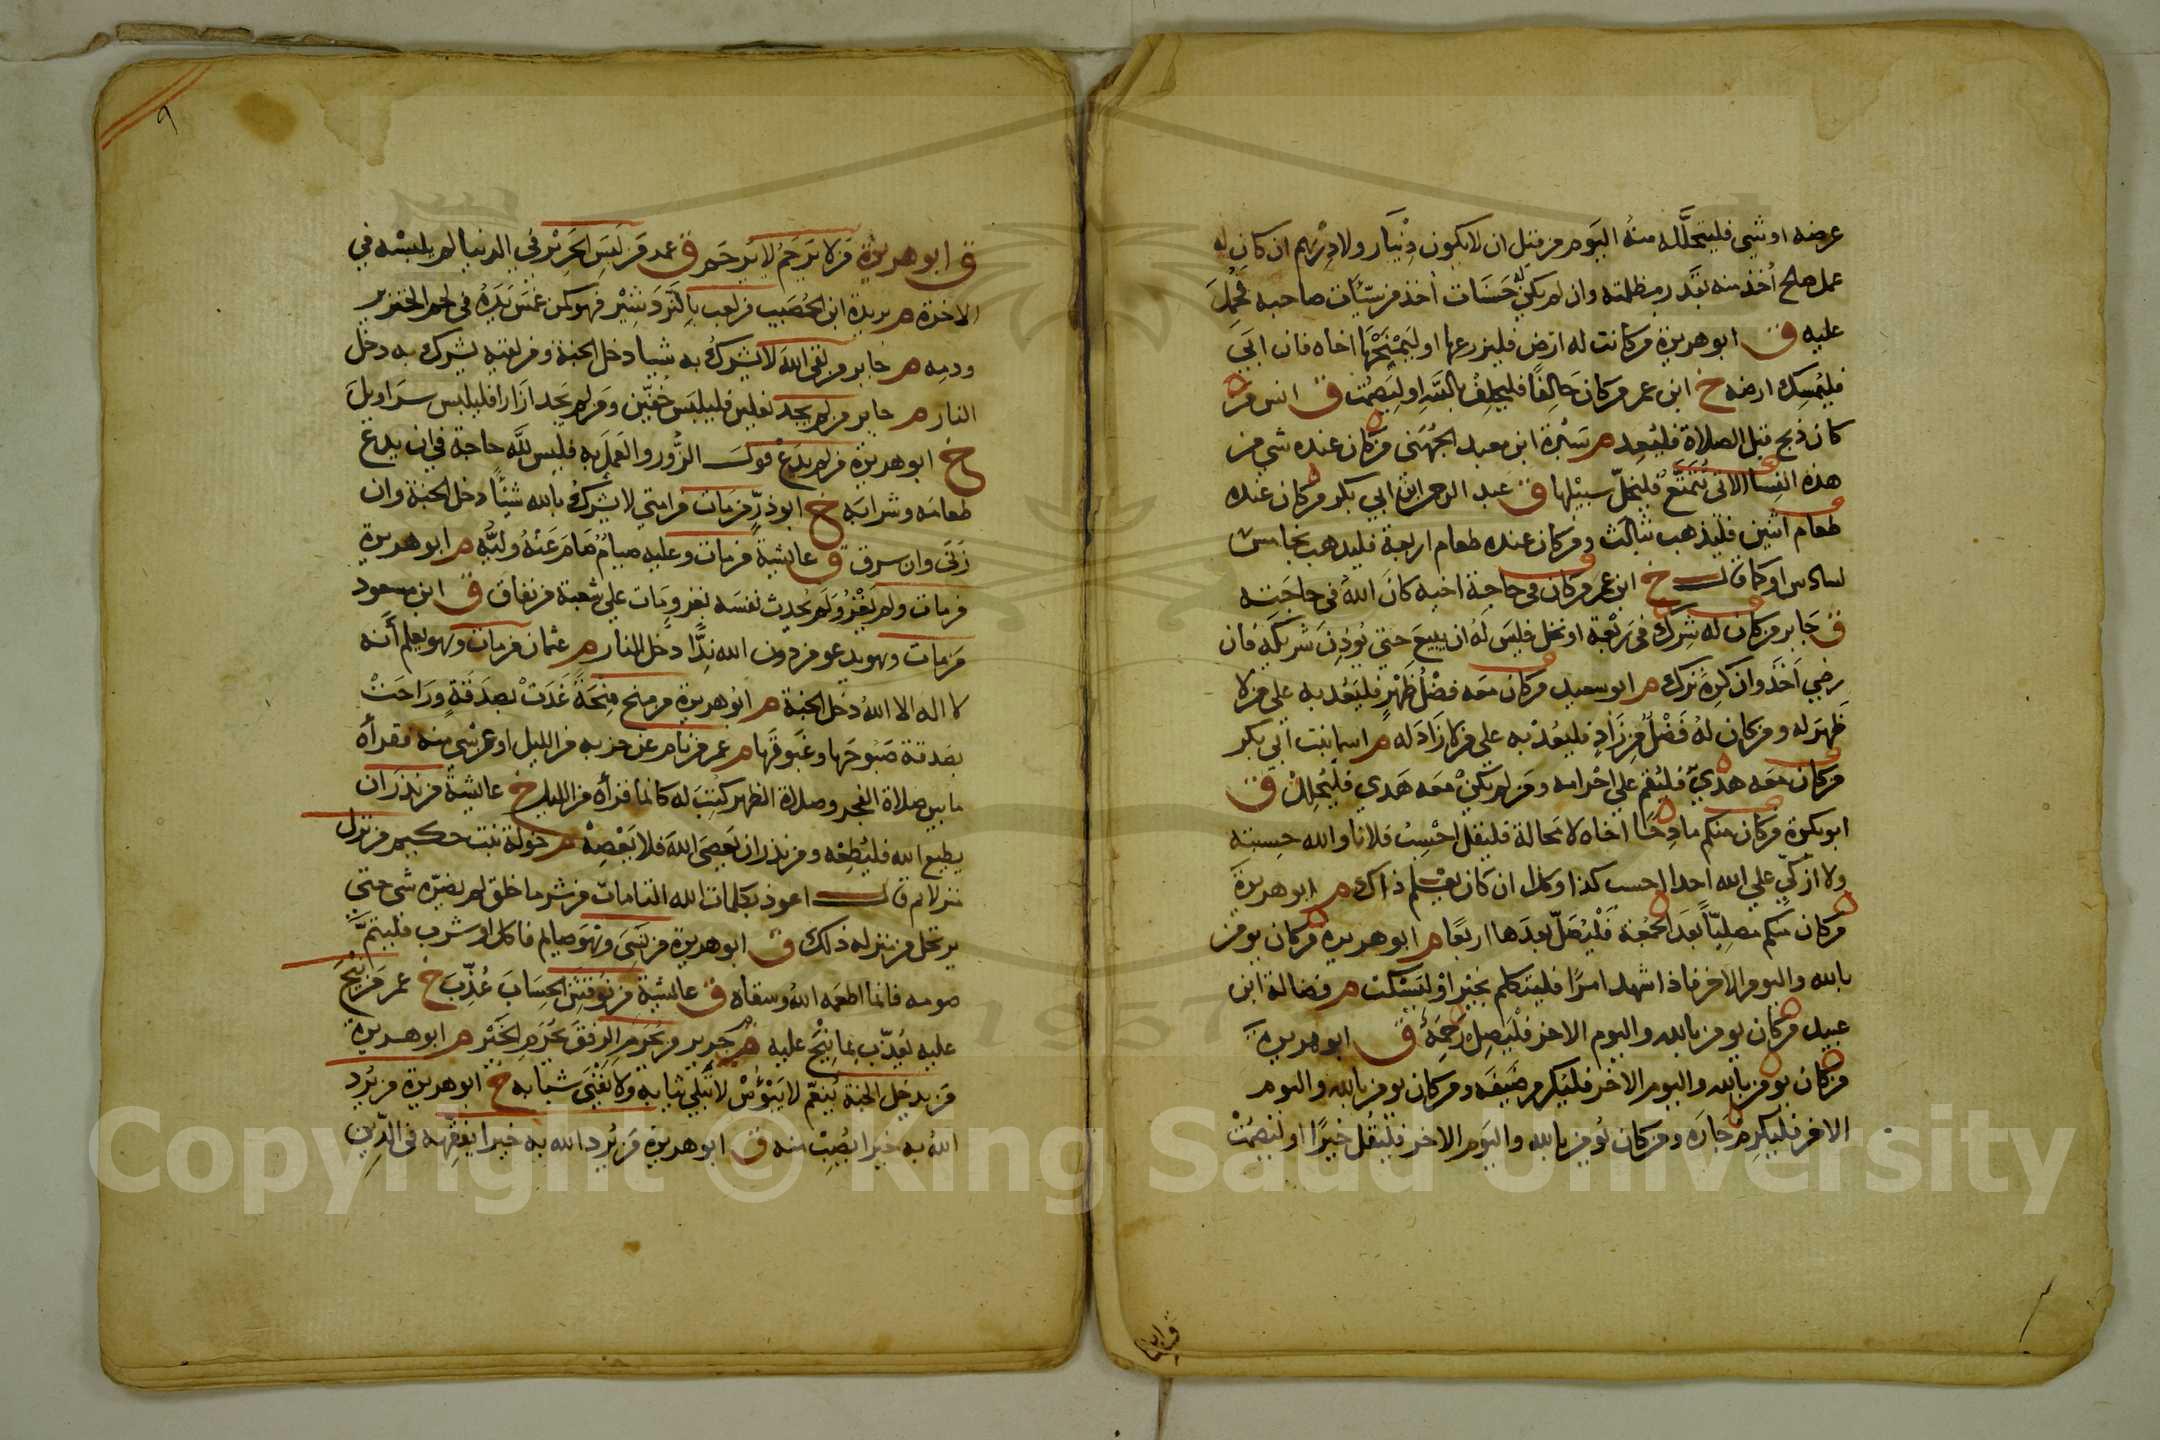 عرضه او شي فليتحلَّله منهُ اليَوم من قبل ان لا يكون دِيْنَار ولا دِرْهم ان كان له
عمل صلح أُخذ منه بقَدر مظلمته وان لم يكن له حَسَنَات أخذ من سيّئات صاحبه فحُمِلَ
عليه ق ابو هريرة من كانت له ارض فليزرعها او ليَمْنَحْهَا اخاه فان ابَي
فليُمسِك ارضه خ ابن عمر من كانَ حَالِفًا فليحلِفْ باللّه او ليَصمُت ق انس من
كان ذبح قبل الصلاة فليُعِد م سَبْرة ابن معبد الجُهَني من كان عنده شي من
هذه النِسا الاتي يُتَمتَّعُ فليُخلّ سبيْلها ق عبد الرحمن ابن ابي بكر من كان عنده
طعام اثنين فليَذهب بثالث ومن كان عنده طعام اربعة فليذهب بخامس
لسادس او كما قال خ ابن عمر من كان في حاجة اخيه كانَ اللهُ في حاجَته
ق جَابر من كان له شِرك في رَبْعة او نخل فليس لَهُ ان يبيعَ حتي يُوذِنَ شريكَهُ فان
رضِي اَخَذَ وان كرِهَ تركَ م ابو سعيد من كان معه فضْلُ ظَهْرٍ فليَعُد به علي من لا
ظَهرَ له ومن كان لهُ فَضْلٌ من زَادٍ فليعُدْ به علي من لا زَادَ له م اسما بنت ابي بكر
من كان معه هَدْيٌ فليُقم علي احْرامه ومَن لم يكنْ معه هَدي فليُحلِلْ ق
ابو بكرة من كان منكم مادِحًا اخاه لا مَحالة فليقل احْسِبُ فلانا والله حِسيبه
ولا اُزَكِّي علي الله احدا احسب كذا وكذا ان كان يعْلم ذاك م ابو هريرةَ
من كان منكم مصلِيًّا بَعدَ الجمُعَة فَلْيُصَلّ بعدَها اربَعًا م ابو هريرة من كان يومن
بالله واليوم الاخر فاذا شهد امرًا فليتكلم بخيْر اوْ ليَسْكت م فضالة ابن
عبيد من كان يومن بالله واليوم الاخر فلْيَصِلْ رَحِمَهُ ق ابو هريرةَ
من كان يومن بالله واليوم الاخر فليُكرم ضَيفَه ومن كان يومن بالله واليوم
الاخر فليُكرِمْ جَارَه ومن كان يُومِن بالله واليَوم الاخر فليَقُل خيْرًا او ليَصمُتْ
٩
ق ابو هريرة مَن لا يَرحَمُ لا يُرحَم ق عمر مَن لَبِسَ الحَرِيْرَ في الدنيا لم يلبسْه في
الاخرة م بريدة ابن الحُصَيب من لعب بالنَّردَشِيْر فهو كمن غمَسَ يَدَهُ في لحم الخنزير
ودمه م جابر من لقي اللهَ لا يُشركُ به شيا دخل الجنة ومن لقيَه يُشرك به دخل
النار م جابر من لم يجد نعلين فليلبَس خُفّين ومَن لم يَجد اِزارا فليلبس سرَاويلَ
خ ابو هريرة من لم يدَعْ قولَ الزُّور والعَمَلَ به فليس للَّه حاجة في ان يدَع
طعامَه وشرابَه خ ابو ذرّ من مات من امتي لا يُشركُ بالله شيْئًا دخل الجنة وان
زَني وان سرق ق عايشة من مات وعليه صيامٌ صَامَ عَنْهُ وليُّه م ابو هريرة
من مات ولم يَغْزُ وَلم يُحدِث نفسَه بغزوٍ مَات علي شعبة من نفاق ق ابن مسعود
مَن مات وهو يدعو من دون الله نِدًّا دخل النار م عثمان من مات وهو يعلم أنه
لا اله الا اللهُ دخل الجنة م ابُو هريرة من منح مِنْحَةً غَدَتْ بصدَقَةٍ ورَاحَتْ
بصَدقة صَبُوحَها وغَبُوقَها م عمر من نام عن حزبه من الليل او عن شي منه فقرأه
ما بين صلاة الفجر وصلاة الظهر كُتبَ له كانما قراه من الليل خ عايشة من نذر اَن
يطيع الله فليُطِعْه ومن نذر ان يَعصيَ اللهَ فلا يَعْصِهْ م خولة بنت حكيم من نزل
منزلا ثم قال اعوذ بكلمات الله التامات من شر ما خلق لم يضرّه شي حتي
يرتحل من منزله ذلك ق ابو هريرة من نَسِيَ وهْوَ صايم فاكل او شرب فليتمَّ
صومه فانما اطعمَه اللهُ وسقاه ق عايشة من نُوقشَ الحِسَابَ عُذِّبَ خ عمر مَن نِيْحَ
عليه يُعَذّب بما نِيْحَ عليه م جَرير من يُحْرَم الرفقَ يُحْرَم الخَيْر م ابو هريرة
مَن يدخُل الجنة يُنعَّم لا يَبْؤُسْ لا تَبْلَي ثيابه ولا يَفْنَي شبابه خ ابو هريرة من يُرِد
اللهُ به خيرا يُصِبْ منه ق ابو هريرة مَن يُرِد الله به خيرا يفقهه في الدِّين
Copyright © King Saud University
1957